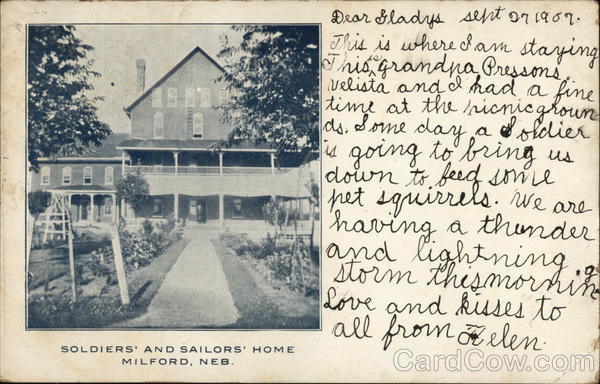 Dear Gladys sept 27 1907.
This is where I am staying
This is grandpa Pressons.
Velista and I had a fine
time at the picnic groun
ds. Some day a Soldier
is going to bring us
down to feed some
pet squirrels. We are
having a thunder
and lightning
storm this mornin
g
Love and kisses to
all from Helen.
SOLDIERS' AND SAILORS' HOME
MILFORD, NEB.
CardCow.com